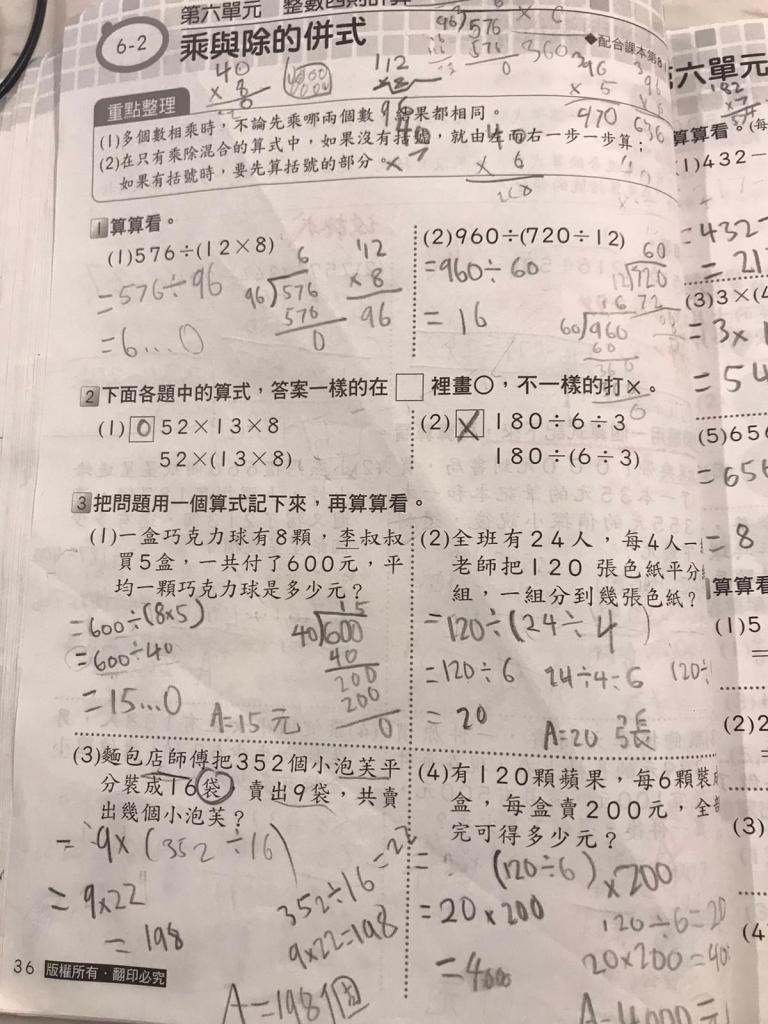 第六單元 整數四則計算
6-2
乘與除的併式
◆配合課本第
重點整理
(1)多個數相乘時，不論先乘哪兩個數，結果都相同。
(2)在只有乘除混合的算式中，如果沒有括號，就由左而右一步一步算；
如果有括號時，要先算括號的部分。
40
× 8
112
96)576
576
0
360
396
× 5
470
636
× 6
1 算算看。
(1)576÷(12×8)
=576÷96
=6…0
6
96)576
576
0
12
× 8
96
(2)960÷(720÷12)
=960÷60
= 16
60
12)720
72
16
60)960
60
360
0
2 下面各題中的算式，答案一樣的在□裡畫○，不一樣的打×。
(1) O 52×13×8
52×(13×8)
(2) X 180÷6÷3
180÷(6÷3)
3 把問題用一個算式記下來，再算算看。
(1)一盒巧克力球有8顆，李叔叔
買5盒，一共付了600元，平
均一顆巧克力球是多少元？
=600÷(8×5)
=600÷40
=15…0
A=15元
15
40)600
40
200
200
0
(2)全班有24人，每4人一
老師把120 張色紙平分
組，一組分到幾張色紙？
=120÷(24÷4)
=120÷6
24÷4=6
(120÷
= 20
A=20 張
(3)麵包店師傅把352個小泡芙平
分裝成16袋，賣出9袋，共賣
出幾個小泡芙？
= 9×(352÷16)
= 9×22
= 198
352÷16=22
9×22=198
A=198個
(4)有120顆蘋果，每6顆裝
盒，每盒賣200元，全
完可得多少元？
= (120÷6)×200
=20×200
=4000
120÷6=20
20×200=400
A=4000元
36 版權所有・翻印必究
六單元
182
× 7
算算看。(每
(1)432－
=432
= 21
(3)3×(4
=3×
=54
(5)656
=656
= 8
算算看
(1)5
(2)2
(3)
(4)